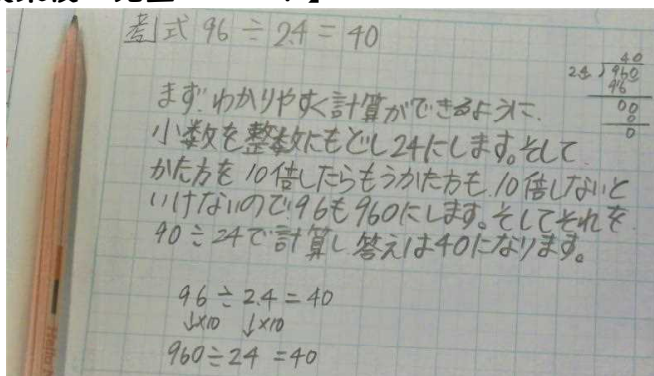 考 式 96÷2.4=40
40
2.4)960
96
00
0
0
まず、わかりやすく計算ができるように、
小数を整数にもどし24にします。そして
かた方を10倍したらもうかた方も、10倍しないと
いけないので、96も960にします。そしてそれを
90÷24で計算し答えは40になります。
96÷2.4=40
↓×10 ↓×10
960÷24=40